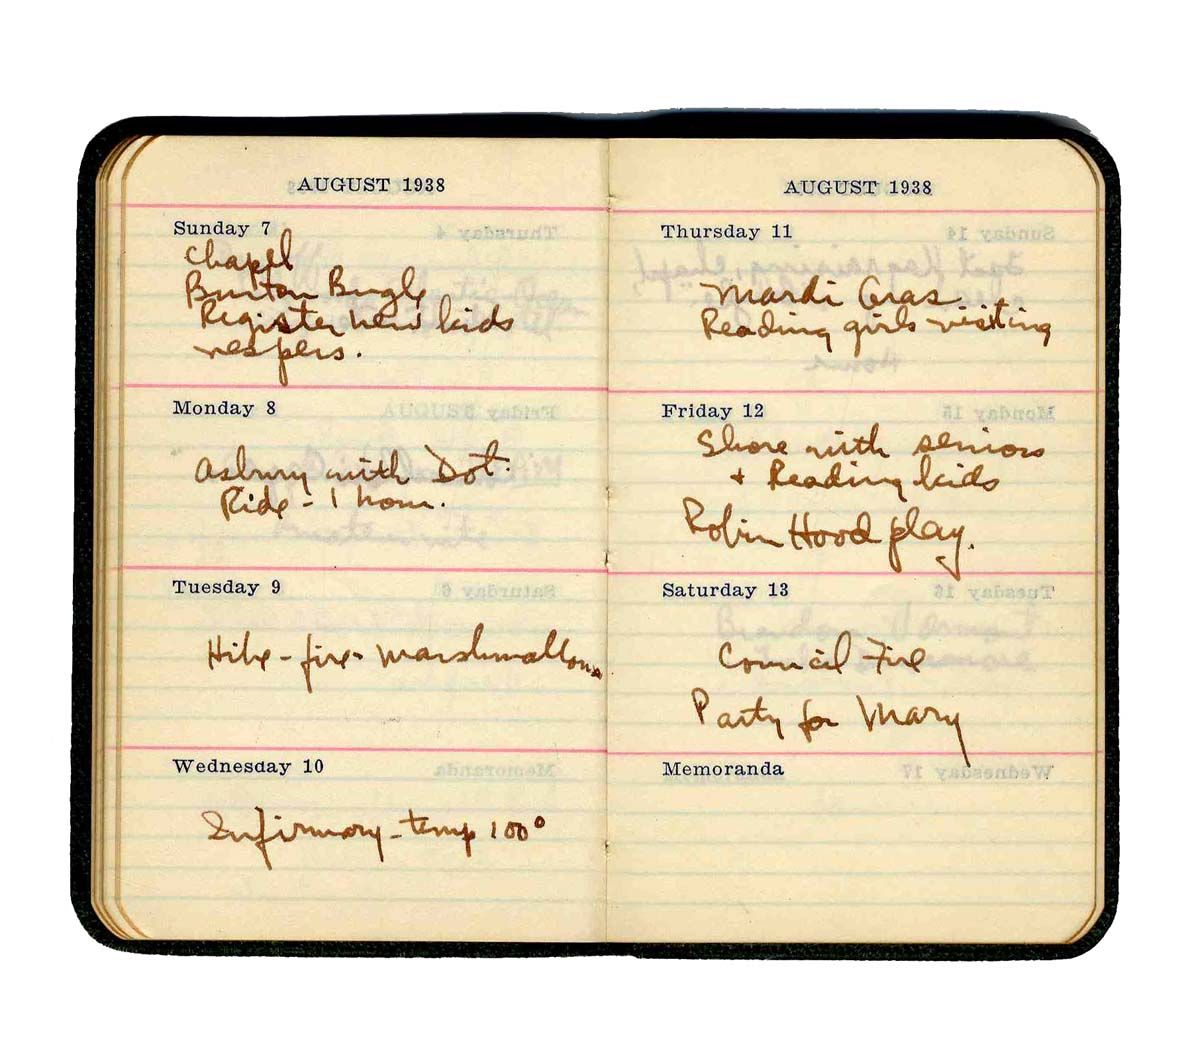 AUGUST 1938
Sunday 7
Chapel
Burton Bugle
Register new kids
vespers.
Monday 8
Asbury with Dot.
Ride - 1 hour.
Tuesday 9
Hike - fire - marshmallows
Wednesday 10
Infirmary - temp 100°
AUGUST 1938
Thursday 11
Mardi Gras
Reading girls visiting
Friday 12
Shore with seniors
+ Reading kids
Robin Hood play.
Saturday 13
Council Fire
Party for Mary
Memoranda